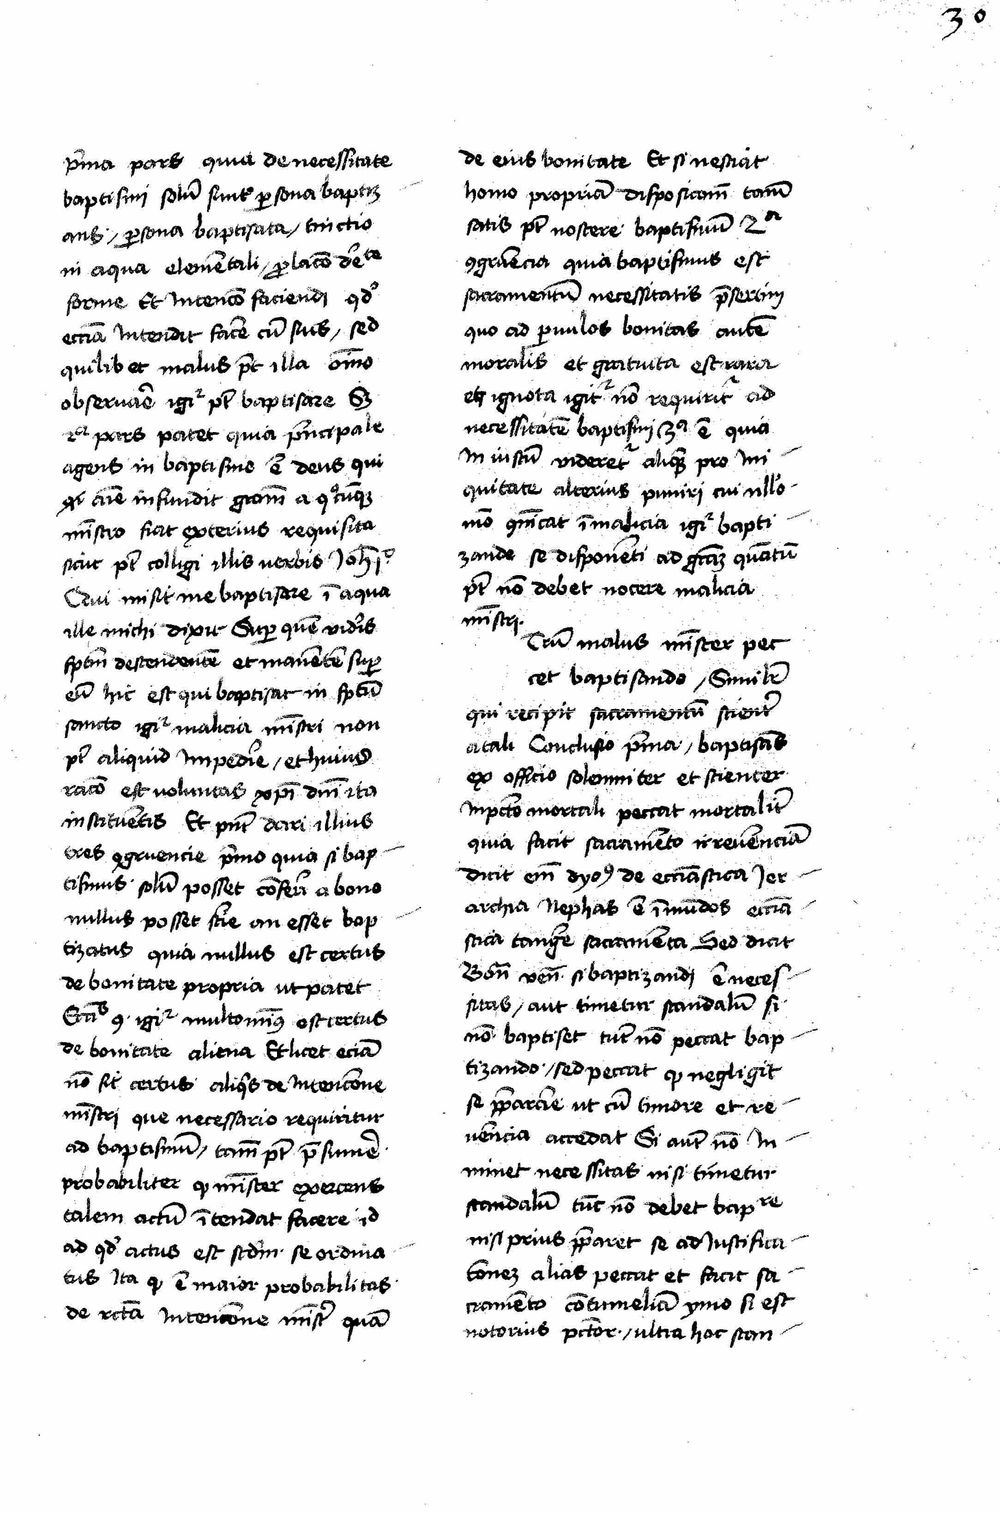 30
p̄ma pars quia de necessitate
baptismi solū sunt ꝑsona baptiz
ans / ꝑsona baptisata / tinctio
in aqua elemētali / ꝓlacō dēte
forme Et Intencō faciendi qd'
eccīa Intendit facē cū suis / sed
quilibet malus pt̄ illa oīmo
obseruaē igi͛ pt̄ baptisare Sz
2ª pars patet quia p̄ncipale
agens in baptismo ē deus qui
infundit grām a qͦcūqꝫ
mīstro fiat exterius requisita
sicut pt̄ colligi illis verbis Joh̄ jº
Qui misit me baptisare ī aqua
ille michi dixit Suꝑ quē vid'is
sp̄m descendentē et manētē suꝑ
eū hic est qui baptisat in sp̄u
sancto igi͛ malicia mīstri non
pt̄ aliquid Impedīe / et huius
racō est voluntas xp̄i dn̄i ita
instituētis Et pn̄t dari illius
tres ꝯgruencie p̄mo quia si bap
tismus solū posset cōferi a bono
nullus posset scīe an esset bap
tizatus quia nullus est certus
de bonitate propria ut patet
Eccīs 9 igi͛ multomīꝰ est certus
de bonitate aliena Et licet eciā
nō sit certus aliqs de Intencōne
mīstri que necessario requiritur
ad baptismū / tamē pt̄ p̄sumē
probabiliter ꝙ mīster exercens
talem actū ītendat facere id
ad qd' actus est scdm se ordina
tus Ita ꝙ ē maior probabilitas
de rctā Intencōne mīstri quā
de eius bonitate Et si nesciat
homo propriā disposicōnē tamē
satis pt̄ noscere baptismū 2ª
ꝯgruēcia quia baptismus est
sacramentū necessitatis p̄sertim
quo ad paruulos bonitas autē
moralis et gratuita est rara
et ignota igit͛ nō requirit͛ ad
necessitatē baptismi 3ª ē quia
In iustū videret͛ aliquē pro Ini
quitate alterius puniri cui nllo
mō ꝯmīcat ī malicia igi͛ bapti
zande se disponēti ad grāꝫ quātū
pt̄ nō debet nocere malicia
mīstri.
Utrū malus mīster pec
cet baptisando / Similiē
qui recipit sacramentū scient͛
a tali Conclusio p̄ma / baptisās
ex officio solemniter et scienter
In pctō mortali peccat mortalit͛
quia facit sacramēto irreuēenciā
dicit em̄ dyoꝰ de eccīastica Jer
archia Nephas ē īmūdos eccīa
stica tangē sacramēta Sed dicit
Bon̄ ven̄ si baptizandi ē neces
sitas / aut timetur scandalū si
nō baptiset tūc nō peccat bap
tizando / sed peccat ꝙ negligit
se p̄parare ut cū timore et re
uēencia accedat Si aut̄ nō In
minet necessitas nisi timetur
scandalū tūc nō debet bapre
nisi prius p̄paret se ad Iustifica
cōnez alias peccat et facit sa
cramēto cōtumeliā ymo si est
notorius pctōr / ultra hoc scan